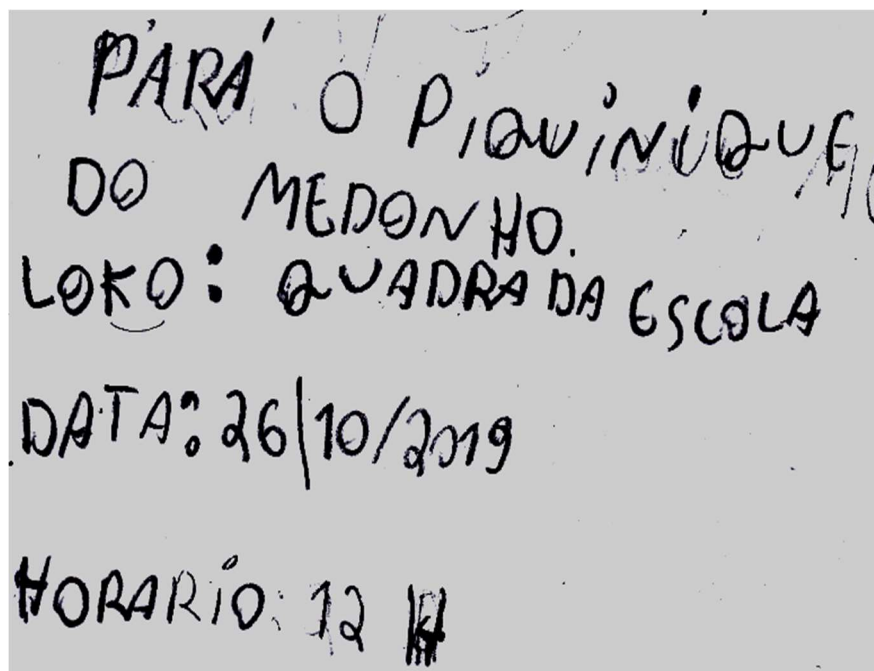 PARÁ O PIQUINIQUE
DO MEDONHO.
LOKO: QUADRA DA ESCOLA
DATA: 26/10/2019
HORARIO: 12 H